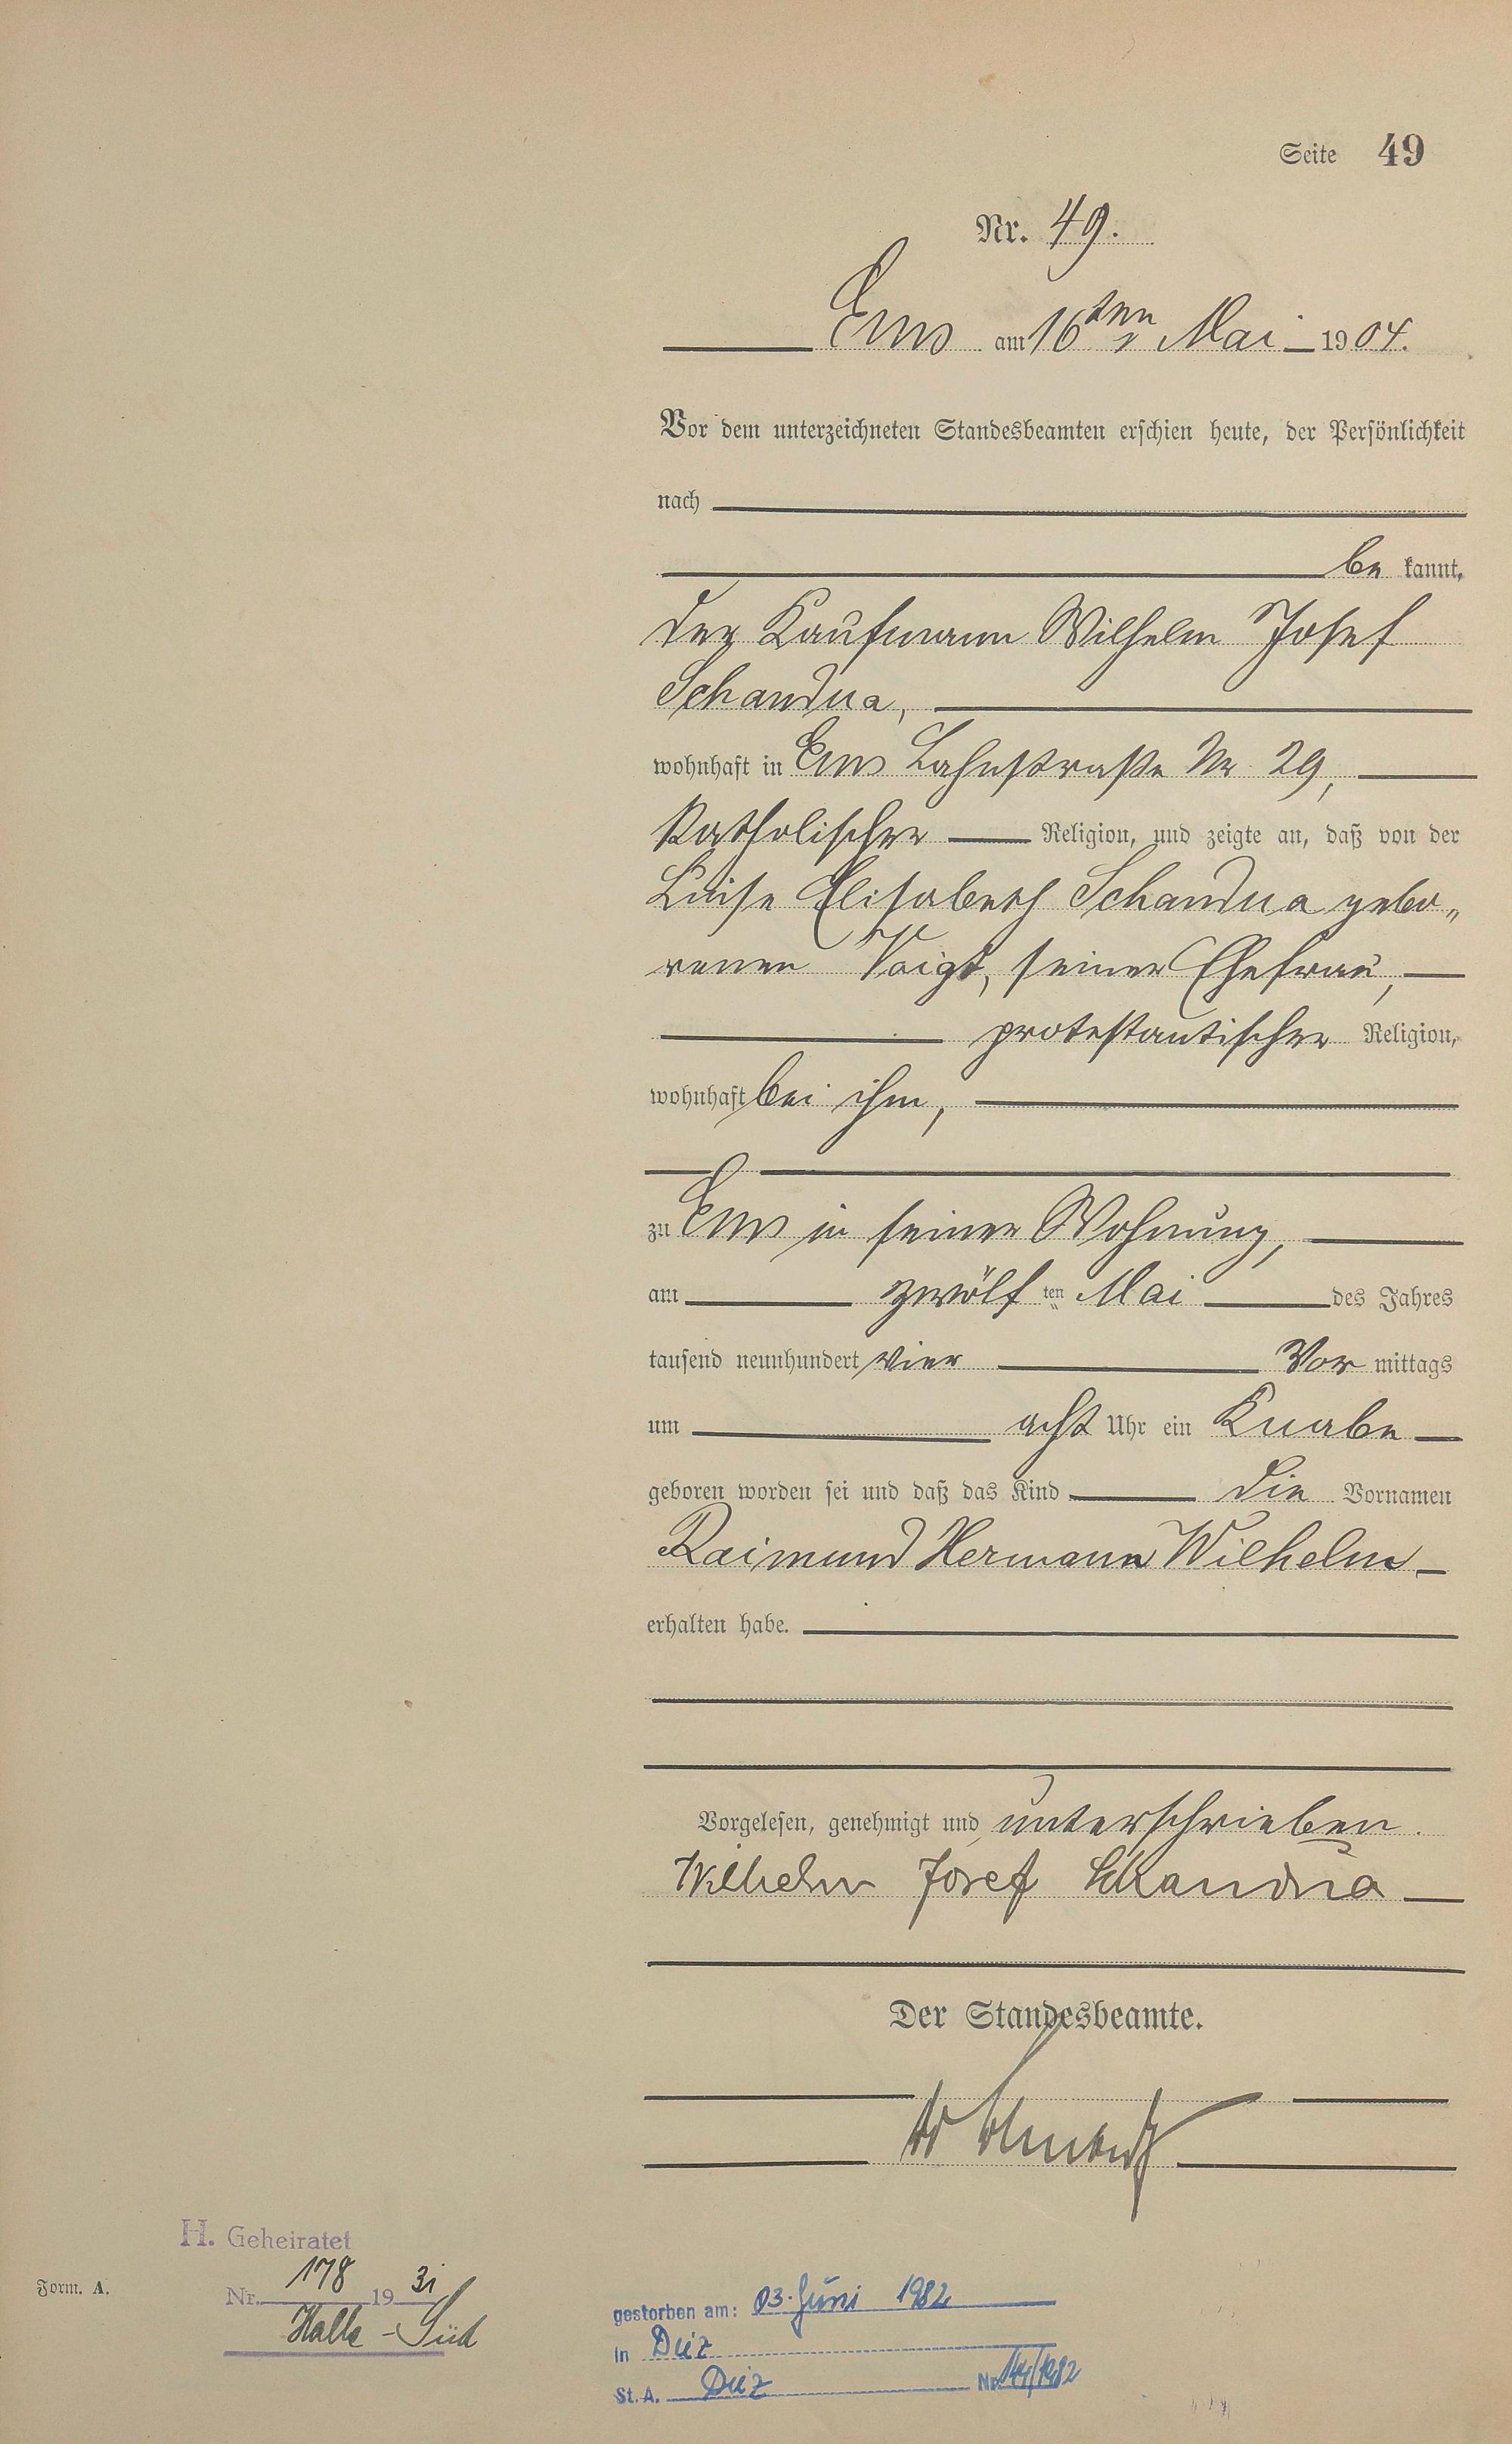 Seite 49
Nr. 49.
Ems am 16ten Mai 1904.
Vor dem unterzeichneten Standesbeamten erschien heute, der Persönlichkeit
nach
be kannt,
der Kaufmann Wilhelm Josef
Schandua,
wohnhaft in Ems Lahnstraße Nr 29,
katholischer Religion, und zeigte an, daß von der
Luise Elisabeth Schandua gebo„
renen Voigt, seiner Ehefrau,
protestantischer Religion,
wohnhaft bei ihm,
zu Ems in seiner Wohnung,
am zwölf ten Mai des Jahres
tausend neunhundert vier Vor mittags
um acht Uhr ein Knabe
geboren worden sei und daß das Kind die Vornamen
Raimund Hermann Wilhelm
erhalten habe.
Vorgelesen, genehmigt und unterschrieben.
Wilhelm Josef Schandua
Der Standesbeamte.
H. Geheiratet
Nr. 178 1931
Halle-Süd
Form. A.
gestorben am: 03. Juni 1982
in Diez
St. A. Diez Nr. /1982